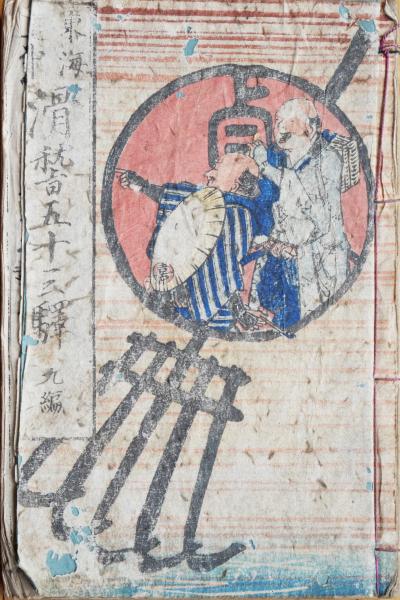 東海
滑稽五十三驛 九編